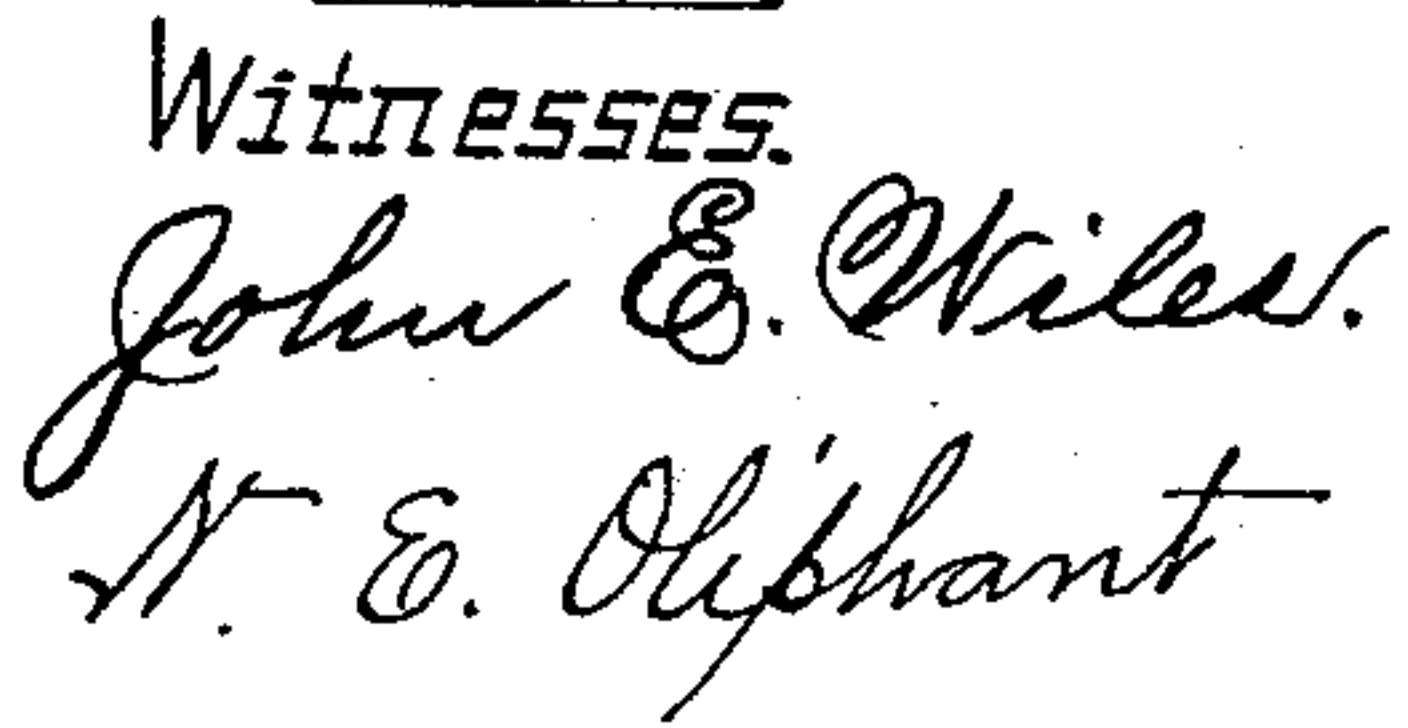 Witnesses.
John E. Wiles.
N. E. Oliphant